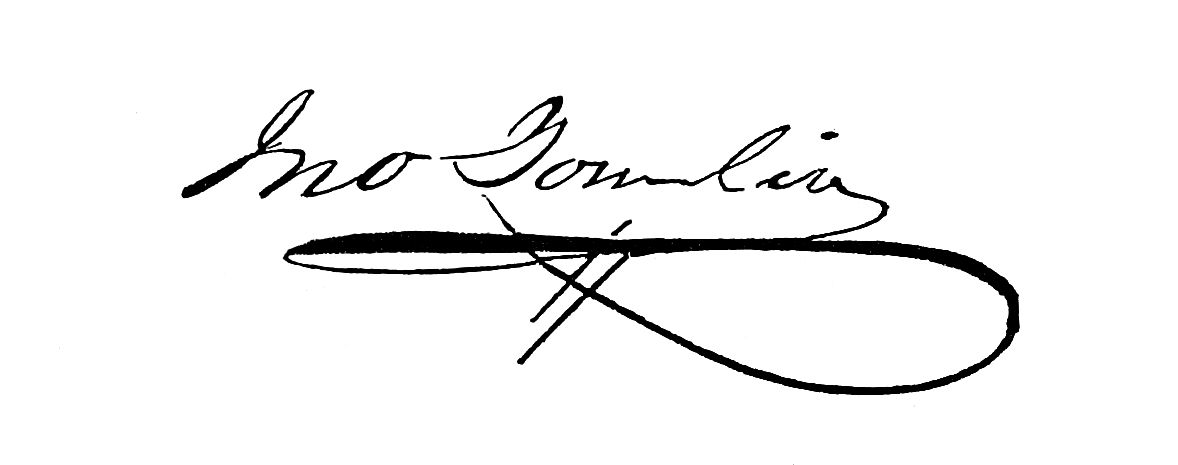 Jno Tomlin